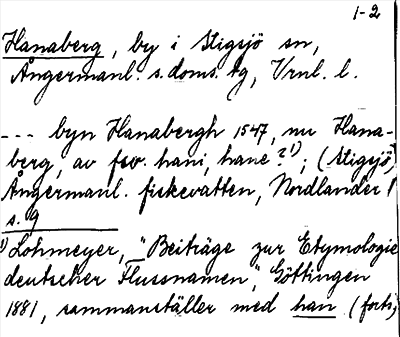 1-2
Hanaberg, by i Stigsjö sn,
Ångermanl. s. doms. tg, Vrnl. l.
--- byn Hanabergh 1547, nu Hana-
berg, av fsv. hani, hane?¹); (Stigsjö,
Ångermanl. fiskevatten, Nordlander
s. 9
¹) Lohmeyer, "Beiträge zur Etymologie
deutscher Flussnamen", Göttingen
1881, sammanställer med han (forts,